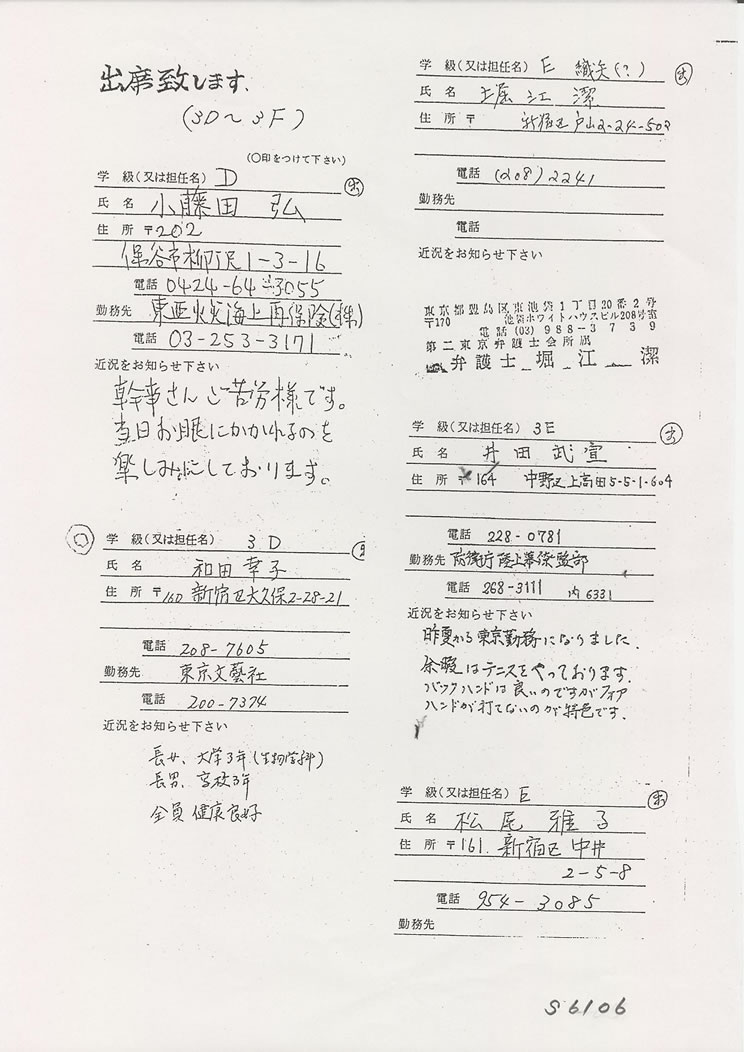 出席致します.
(3D～3F)
(〇印をつけて下さい)
学 級(又は担任名) D
氏 名 小藤田 弘
住 所 〒202
保谷市柳沢1-3-16
電話 0424-64-3055
勤務先 東亜火災海上再保険(株)
電話 03-253-3171
近況をお知らせ下さい
幹事さん ご苦労様です。
当日お眼にかかれるのを
楽しみにしております。
学 級(又は担任名) 3D
氏 名 和田 幸子
住 所 〒160 新宿区大久保2-28-21
電話 208-7605
勤務先 東京文藝社
電話 200-7374
近況をお知らせ下さい
長女、大学3年(生物学科)
長男、高校3年
全員 健康良好
学 級(又は担任名) E 織矢(?)
氏 名 堀江 潔
住 所 〒 新宿区戸山2-24-502
電話 (208) 2241
勤務先
電話
近況をお知らせ下さい
東京都豊島区東池袋1丁目20番2号
〒170 池袋ホワイトハウスビル208号室
電話(03) 988-3739
第二東京弁護士会所属
弁護士 堀江 潔
学 級(又は担任名) 3E
氏 名 井田 武宣
住 所 〒164 中野区上高田5-5-1-604
電話 228-0781
勤務先 防衛庁陸上幕僚監部
電話 268-3111 内6331
近況をお知らせ下さい
昨夏から東京勤務になりました.
余暇はテニスをやっております.
バックハンドは良いのですがフォア
ハンドが打てないのが特色です.
学 級(又は担任名) E
氏 名 松尾 雅子
住 所 〒161. 新宿区中井
2-5-8
電話 954-3085
勤務先
S6106